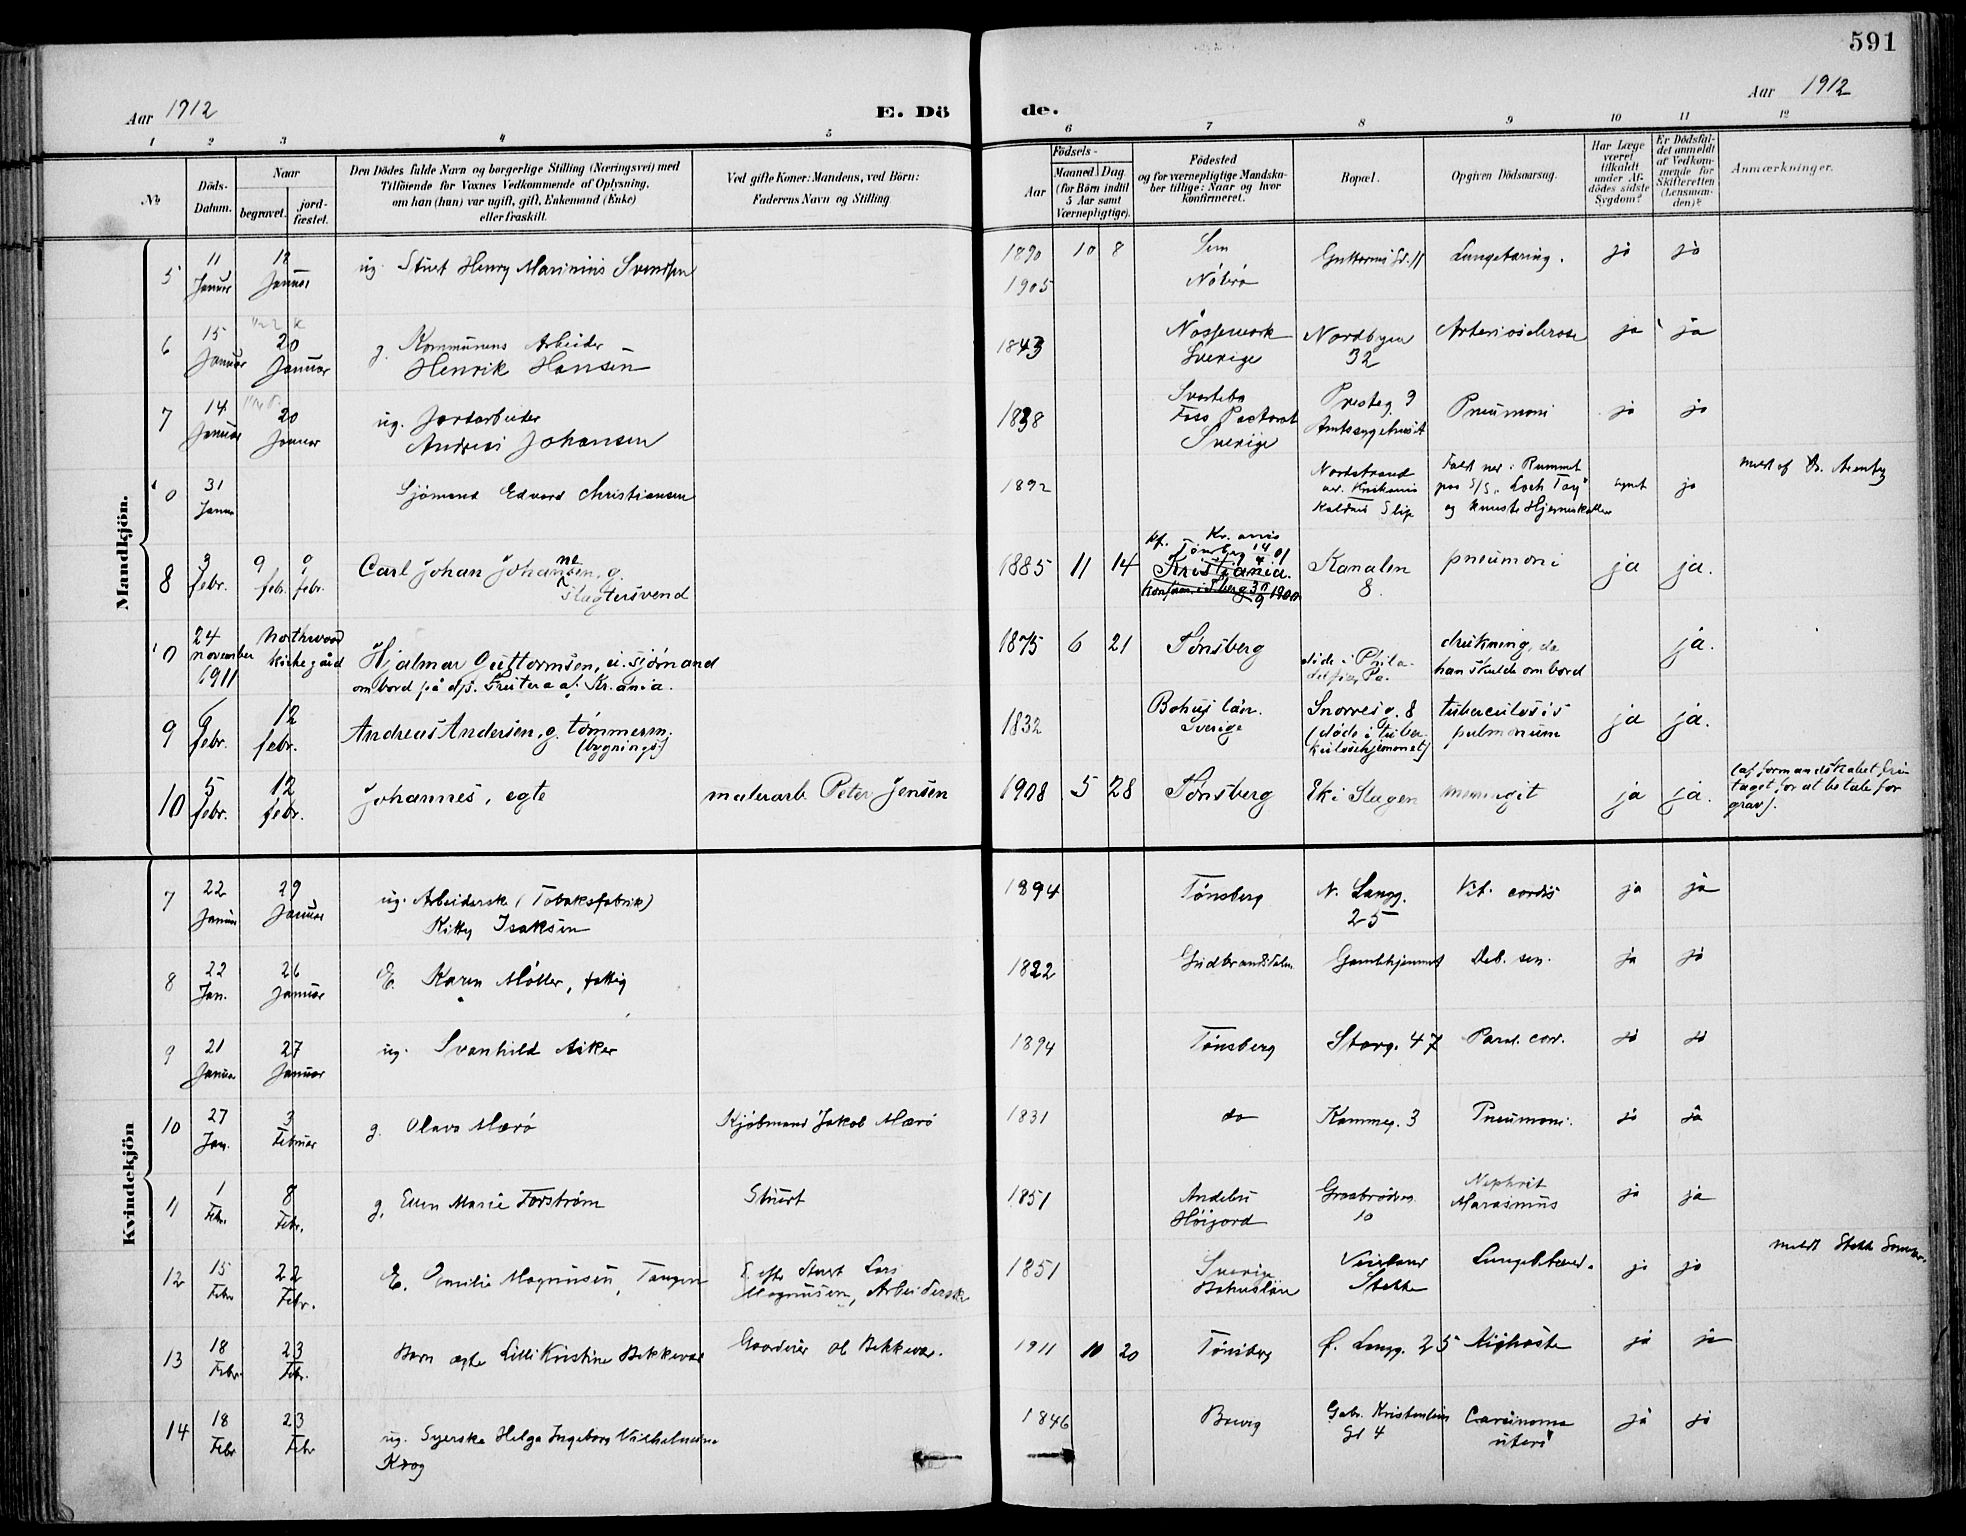 591
Aar 1912
E. Dö
de.
Aar 1912
1 2 3 4 5 6 7 8 9 10 11 12
№
Döds-
Datum.
Naar
begravet.
jord-
fæstet.
Den Dödes fulde Navn og borgerlige Stilling (Næringsvei) med
Tilföiende for Voxnes Vedkommende af Oplysning,
om han (hun) var ugift, gift, Enkemand (Enke)
eller fraskilt.
Ved gifte Koner: Mandens, ved Börn:
Faderens Navn og Stilling.
Födsels-
Aar
Maaned Dag
(for Börn indtil
5 Aar samt
Værnepligtige).
Födested
og for værnepligtige Mandska-
ber tillige: Naar og hvor
konfirmeret.
Bopæl.
Opgiven Dödsaarsag.
Har Læge
været
tilkaldt
under Af-
dödes sidste
Sygdom?
Er Dödsfal-
det anmeldt
af Vedkom-
mende for
Skifteretten
(Lensman-
den)?
Anmærkninger.
Mandkjön.
5 11 Januar 18 Januar ug. Stuert Henry Marinius Svendsen 1890 10 8 Sem Guttormsgd. 11 Lungetæring. ja ja
1905 Nöterö
6 15 Januar 20 Januar g. Kommunens Arbeider
Henrik Hansen 1843 Sverige Nordbyen 32 Arteriosclerose ja ja
7 14 Januar 20 Januar ug. Jordarbeider
Andreas Johansen 1838 Svarteborg
Foss Pastorat
Sverige Presteg. 9
Amtssygehuset Pneumoni ja ja
0 31 Januar Sjömand Edvard Christiansen 1892 Nordstrand
Kaldnæs Slip Faldt ned i Rummet
paa S/S. "Loch Tay"
og knuste Hjerneskallen ja
8 3 febr. 9 febr. 9 febr. Carl Johan Johansen, g.
slagtersvend 1885 11 14 Kr.ania
Tönsberg 14/4 01
Kristiania.
Kanalen 8. pneumoni ja ja.
0 24 november 1911 Northwood kirkegård Hjalmar Guttormsen, u. sjömand
ombord på d/s. Freitera af Kr.ania. 1875 6 21 Tönsberg döde i Phila-
delfia, Pa. drukning, da
han skulde ombord ja.
9 6 febr. 12 febr. Andreas Andersen, g. tömmerm.
(bygnings) 1832 Bohus län.
Sverige Snorresg. 8
(döde i Tuber-
kulosehjemmet) tuberculosis
pulmonum ja ja.
10 5 febr. 12 febr. Johannes, egte malerarb. Peter Jensen 1908 5 28 Tönsberg Ek i Slagen meningit ja ja. (af formandskabet fri-
taget for at betale for
grav).
Kvindekjön
7 22 Januar 29 Januar ug. Arbeiderske (Tobaksfabrik)
Kitty Isaksen 1894 Tönsberg N. Langg.
25 Vit. cordis ja ja
8 22 Jan. 26 Januar E. Karen Möller, fattig 1822 Gudbrandsdalen Gamlehjemmet Deb. sen. ja ja
9 21 Januar 27 Januar ug. Svanhild Aiker 1894 Tönsberg Storg. 47 Paral. cor. ja ja
10 27 Jan. 3 Februar g. Olava Mærö Kjöbmand Jakob Mærö 1831 do Kammeg. 3 Pneumoni. ja ja
11 1 Febr. 8 Febr. g. Ellen Marie Forström Stuert 1851 Andebu
Höijord Graabröderg.
10 Nephrit
Marasmus ja ja
12 15 Febr 22 Febr. E. Emilie Magnusen, Tangen E. efter Stuert Lars
Magnusen, Arbeiderske 1851 Sverige
Bohuslän Veierland
Stokke ja ja meldt Stokke
13 18 Febr. 23 Febr. Barn ægte Lilli Kristine Bekkevar Gaardeier Ol Bekkevar. 1911 10 20 Tönsberg Ö. Langg. 25 Kighoste ja ja
14 18 Febr 23 Febr ug. Syerske Helga Ingeborg Vilhelmine
Krog 1846 Gabr. Kristensens
Gd 4 Carcinoma
uteri ja ja